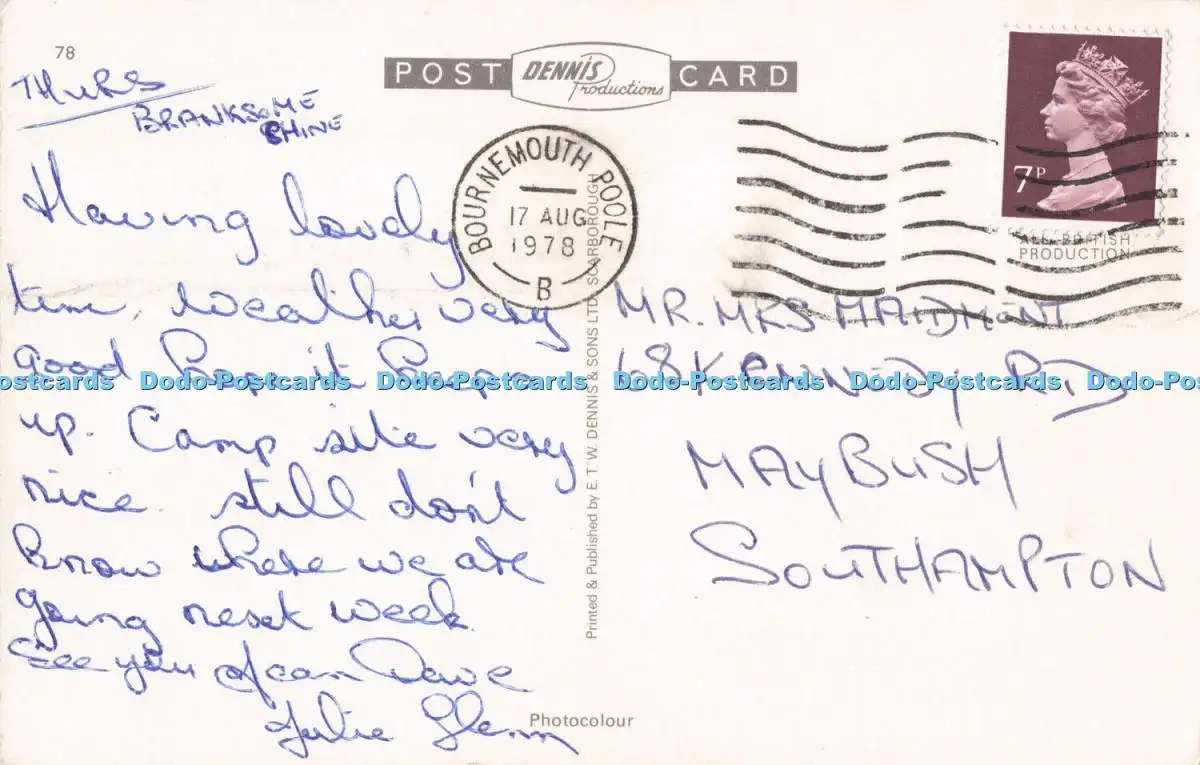 78
POST DENNIS Productions CARD
THURS
BRANKSOME
CHINE
Having lovely
time, weather very
good hope it keeps
up. Camp site very
nice. still don't
know where we are
going next week.
See you Jean Dave
Julie Glenn
BOURNEMOUTH POOLE
17 AUG
1978
B
7P
ALL BRITISH
PRODUCTION
MR. MRS MAIDMENT
68 KENNEDY RD
MAYBUSH
SOUTHAMPTON
Printed & Published by E. T. W. DENNIS & SONS LTD. SCARBOROUGH
Photocolour
Dodo-Postcards Dodo-Postcards Dodo-Postcards Dodo-Postcards Dodo-Postcards